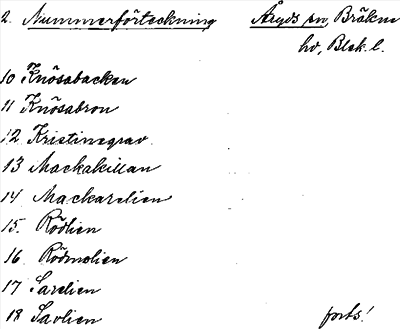 2. Nummerförteckning Åryds sn, Bräkne
hd, Blek. l.
10 Knösabacken
11 Knösabron
12 Kristinegrav
13 Mackakillan
14 Mackarelien
15. Rödlien
16. Rödmolien
17 Sarelien
18 Savlien forts!